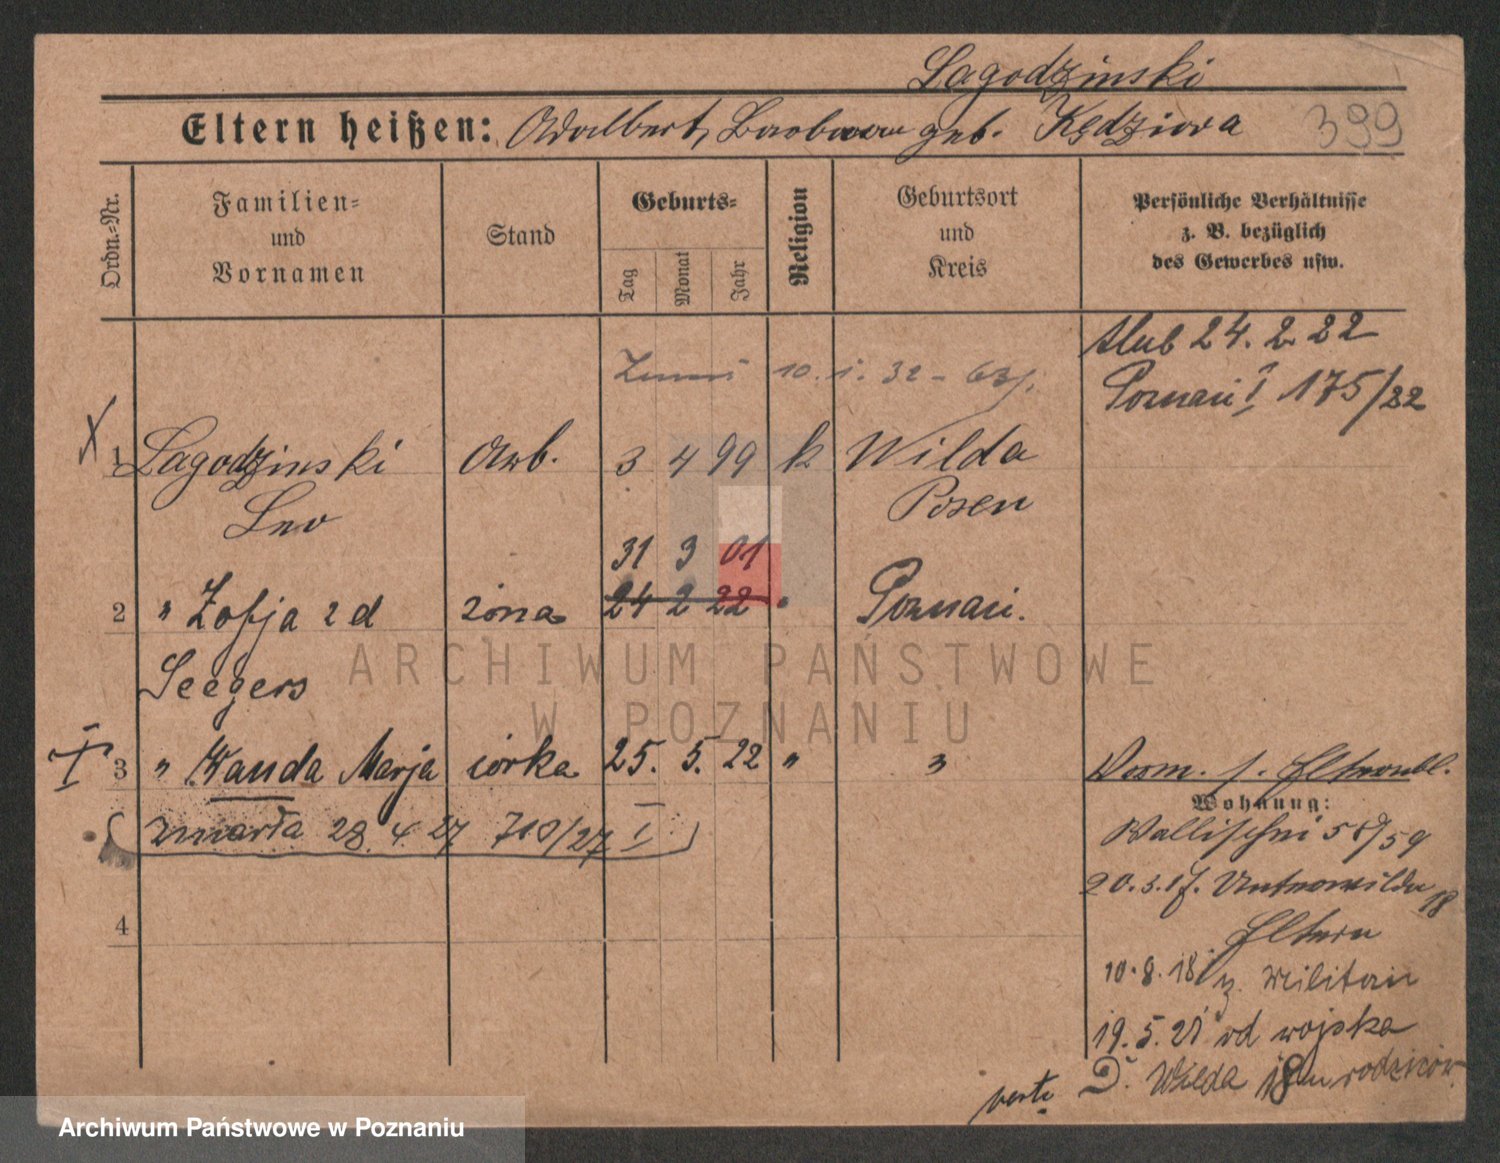 Lagodzinski
Eltern heißen: Adalbert, Barbara geb. Kędziora 399
Ordn.-Nr.
Familien-
und
Vornamen
Stand
Geburts-
Tag
Monat
Jahr
Religion
Geburtsort
und
Kreis
Persönliche Verhältnisse
z. B. bezüglich
des Gewerbes usw.
ślub 24. 2 22
Poznań I 175/22
10. 1. 32
X
1 Lagodzinski Arb. 3 4 99 k Wilda
Leo Posen
31 3 01
2 " Zofja z d żona 24 2 22 " Poznań.
Seegers
3 " Wanda Marja córka 25. 5. 22 " "
zmarła 28. 4 27 710/27 I
4
Wohnung:
Wallischei 58/59
20.3.17. Unterwilda 18
Eltern
10.8.18 z. Militär
19.5.21 od wojska
D. Wilda 18 u rodziców
verte
ARCHIWUM PAŃSTWOWE
W POZNANIU
Archiwum Państwowe w Poznaniu